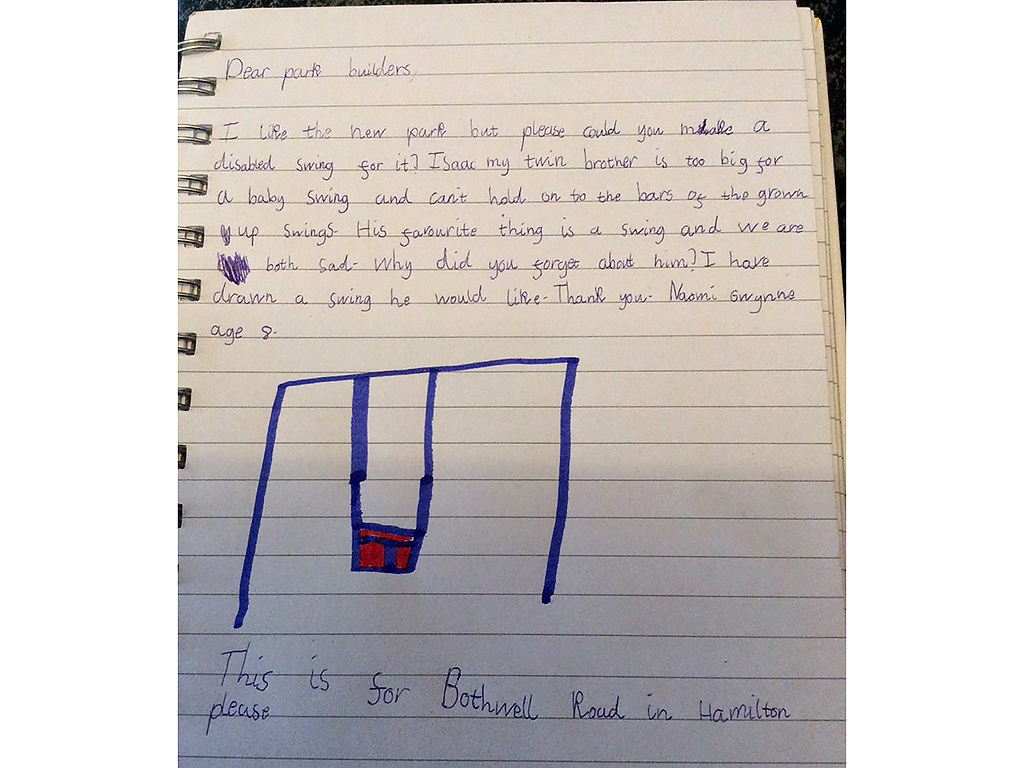 Dear park builders,
I like the new park but please could you make a
disabled swing for it? Isaac my twin brother is too big for
a baby swing and can't hold on to the bars of the grown
up swings. His favourite thing is a swing and we are
both sad. Why did you forget about him? I have
drawn a swing he would like. Thank you. Naomi Gwynne
age 8.
This is for Bothwell Road in Hamilton
please